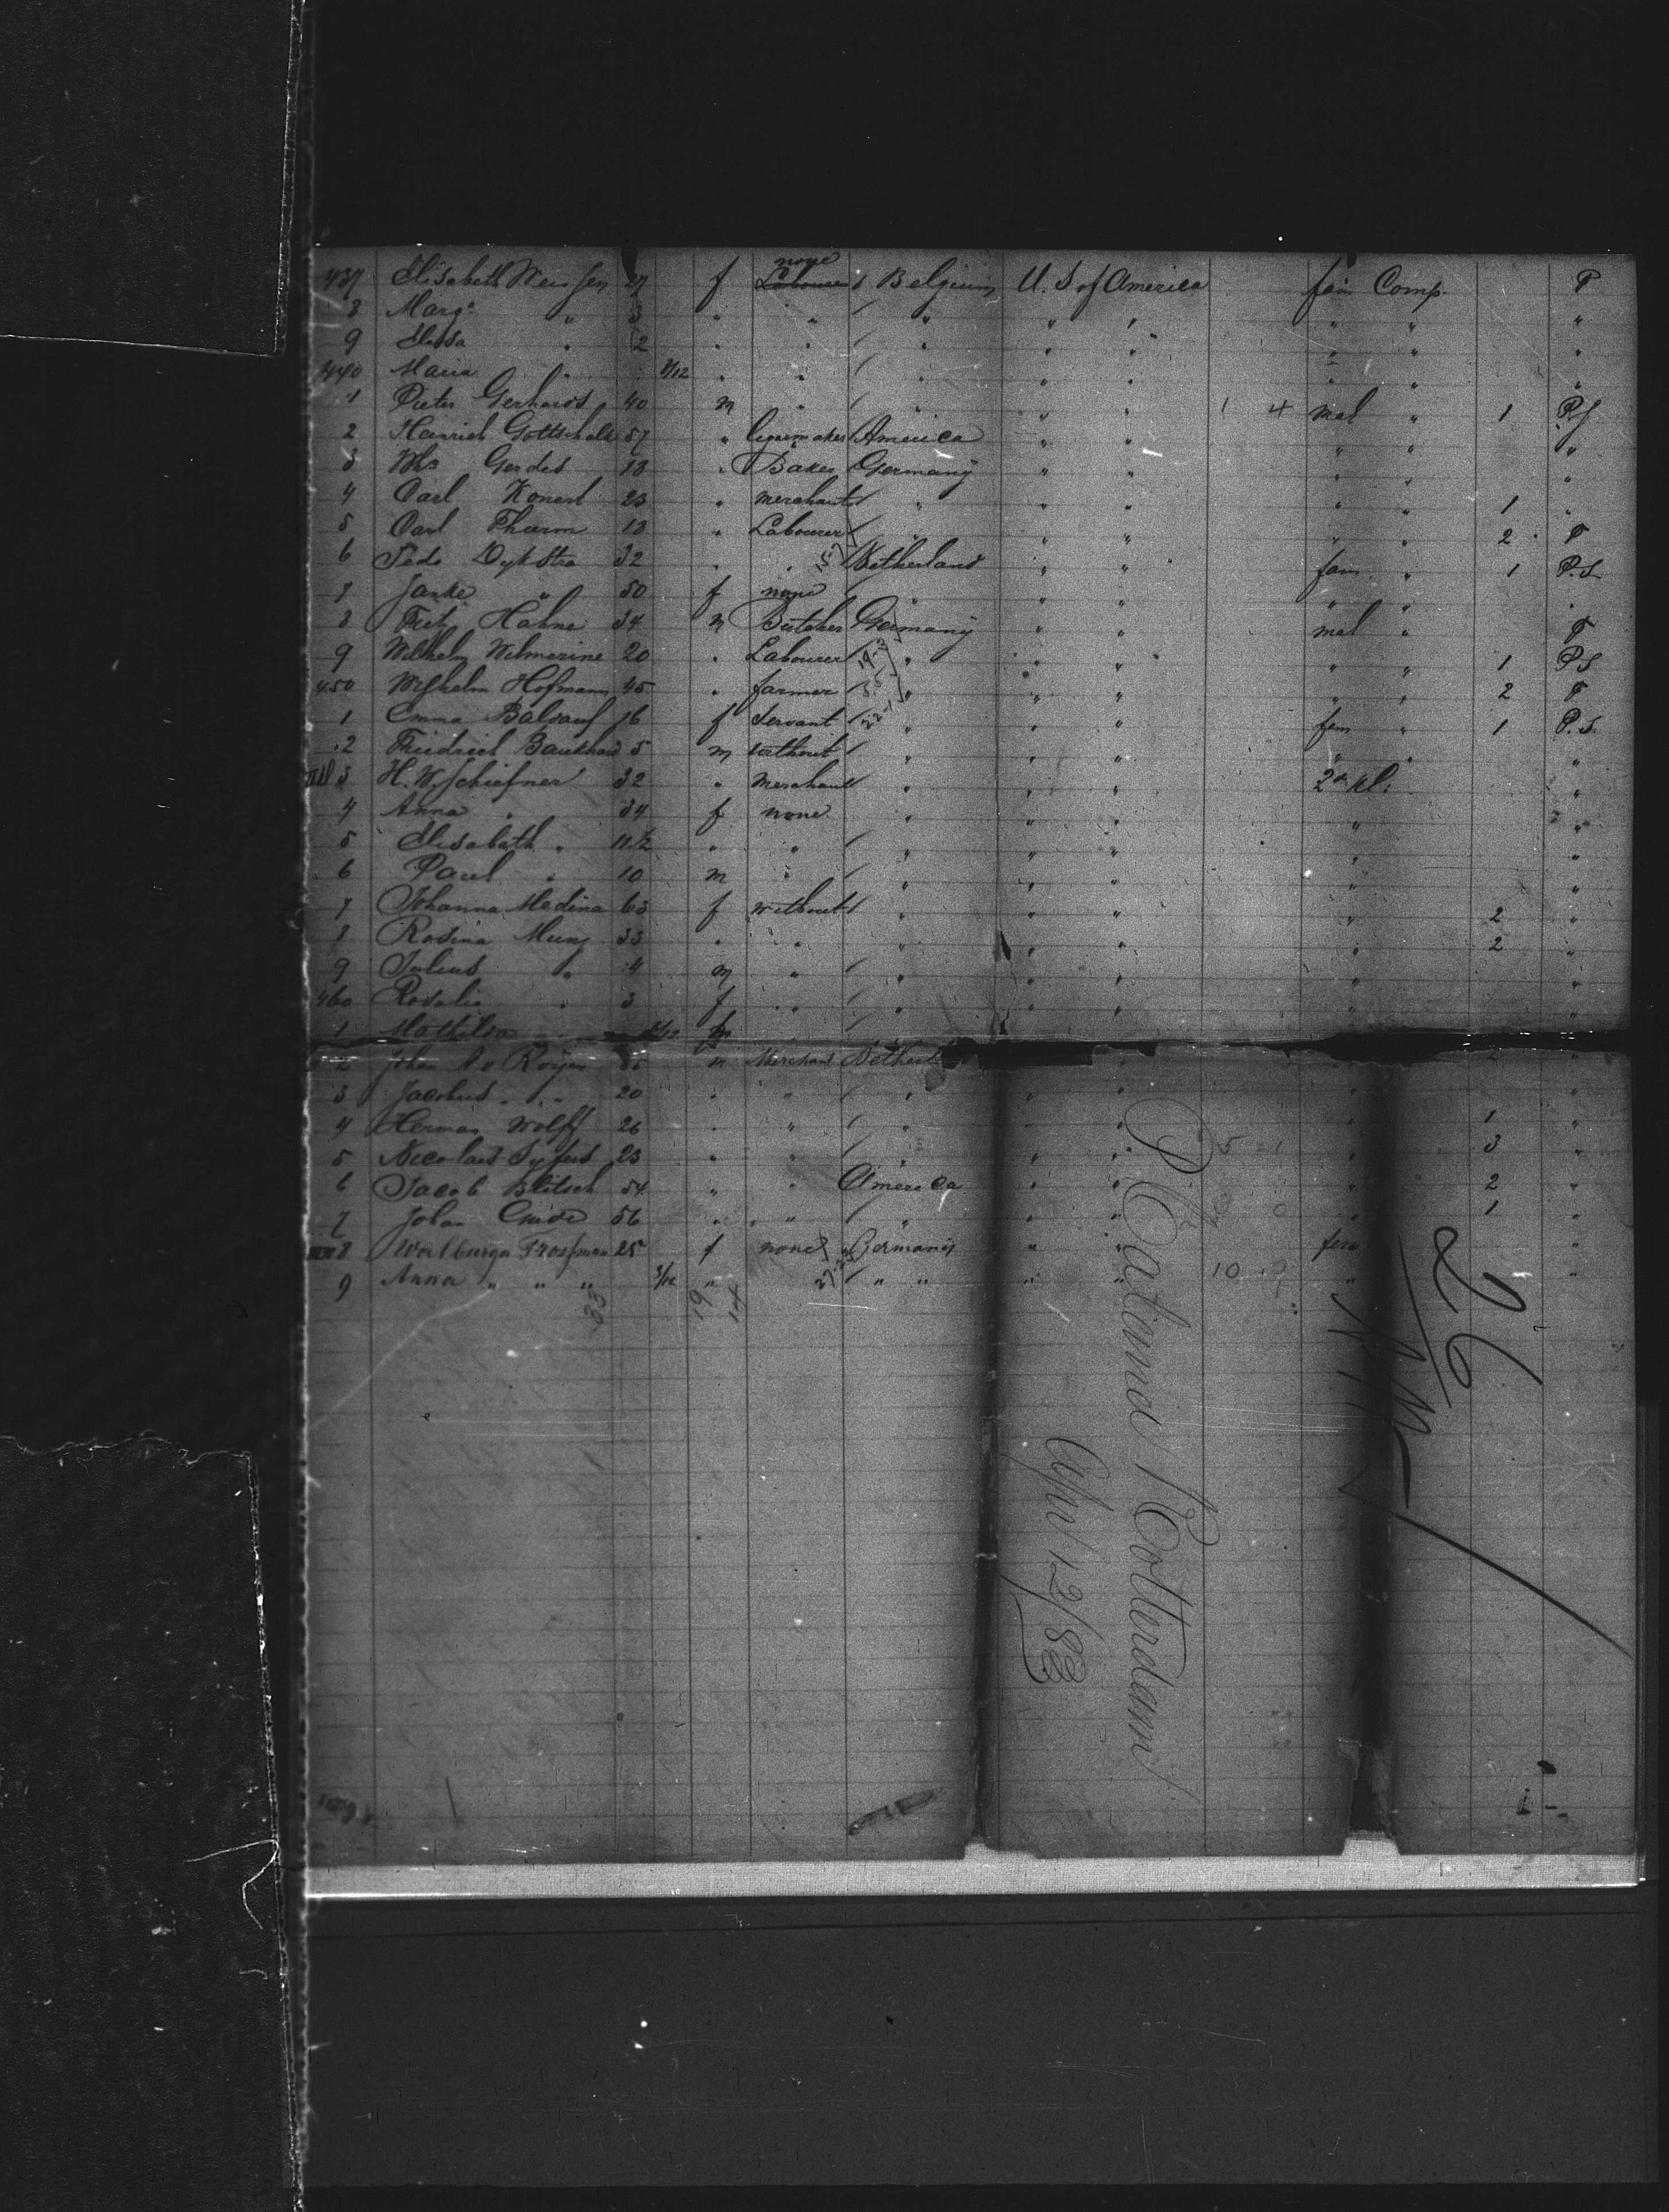 437 Elisabeth Weisen 27 f none Labourer Belgium U. S of America fem Comp. P
8 Marg. " 3 " " " " " " " "
9 Elisa " 2 " " " " " " " "
440 Maria " 3/12 " " " " " " " "
1 Pieter Gerhards 40 m " " " " 1 4 mal " 1 P.S
2 Heinrich Gottschalk 57 " America " " " " "
3 Wm Gerdes 18 " Baker Germany " " " " "
4 Carl Konert 23 " merchant " " " " " 1 "
5 Carl Thurm 18 " Labourer " " " " " 2 P
6 Dykstra 32 " " Netherland " " fam " 1 P.S.
7 Janke " 50 f none " " " " " "
8 Fritz Hahne 34 m Butcher Germany " " mal " P
9 Wilhelm Wilmerine 20 " Labourer " " " " " 1 P.S
450 Wilhelm Hofmann 45 " farmer " " " " " 2 P
1 Emma Baldauf 16 f Servant " " " fem " 1 P.S.
2 Friedrich Bankhard 5 m without " " " " " "
3 H. W. Schiefner 32 " merchant " " " 2de kl. "
4 Anna " 34 f none " " " " "
5 Elisabeth " 11 1/2 " " " " " " "
6 Paul " 10 m " " " " " "
7 Johanna Medina 63 f without " " " " 2 "
8 Rosina Munz 33 " " " " " " 2 "
9 Julius " 4 m " " " " " "
460 Rosalie " 3 f " " " " " "
1 Mathilda
2 Johan v Royen m Merchant 2 "
3 Jacobus " " 20 " " " " " " "
4 Herman Wolff 26 " " " " " " 1 "
5 Nicolaus 23 " " " " " 5 1 " 3 "
6 Jacob 54 " " America " " " 2 "
7 Johan 56 " " " " " " 1 "
8 Walburga Trosman 25 f none Germany " " fem "
9 Anna " " " 3/12 " " " " " 10 " "
33 19 14
P Caland / Rotterdam
April 12/88
26